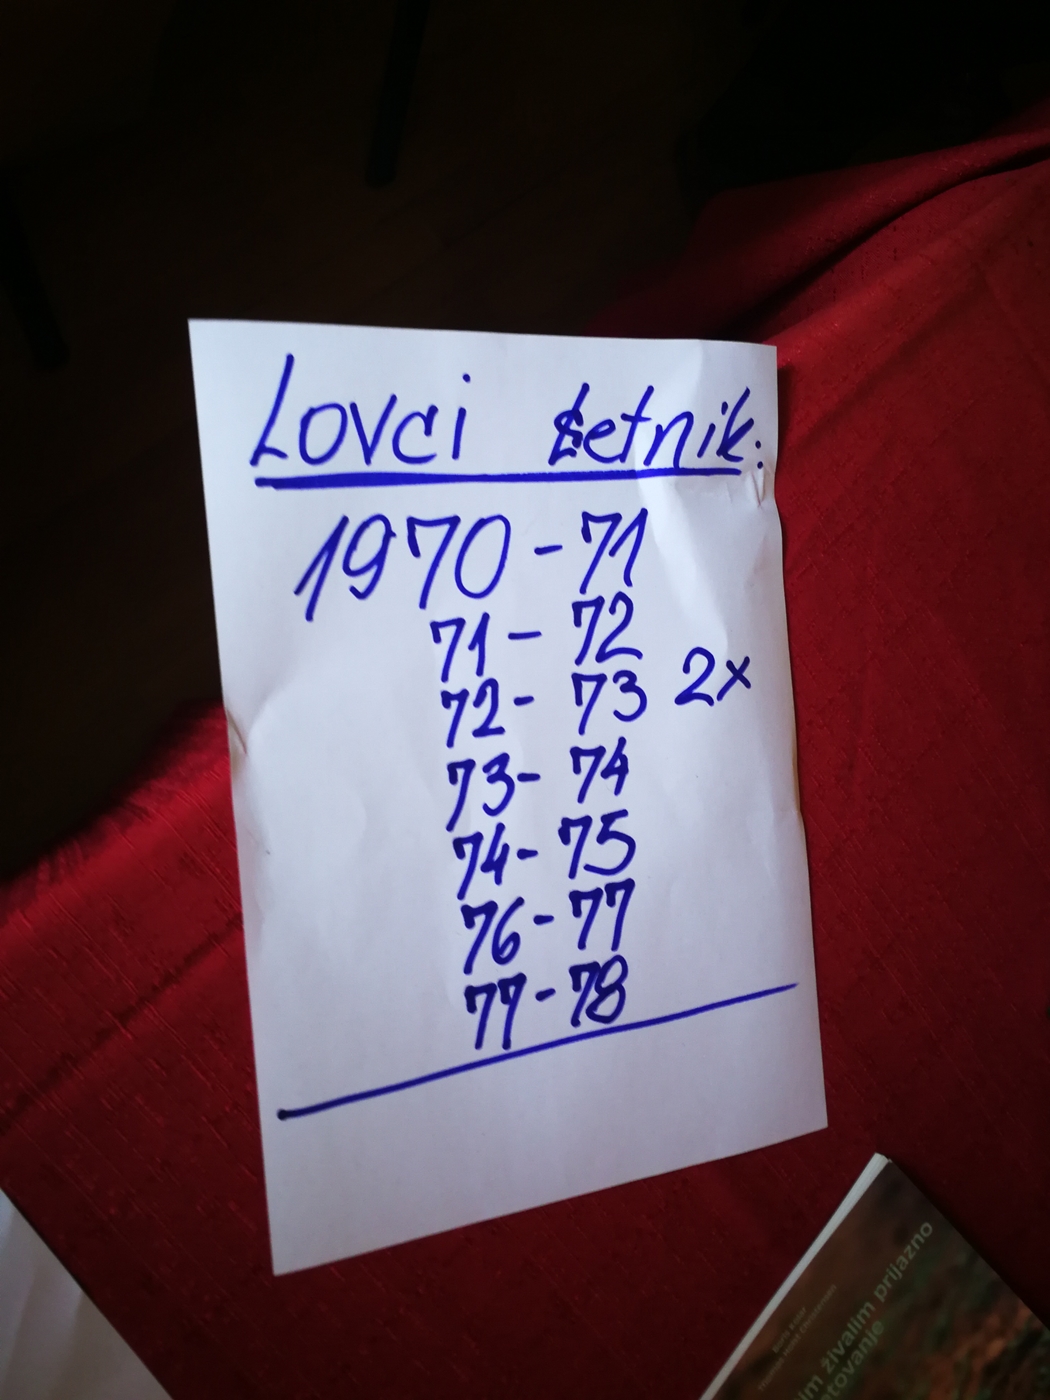 Lovci letnik:
1970-71
71-72
72-73 2x
73-74
74-75
76-77
77-78
živalim prijazno